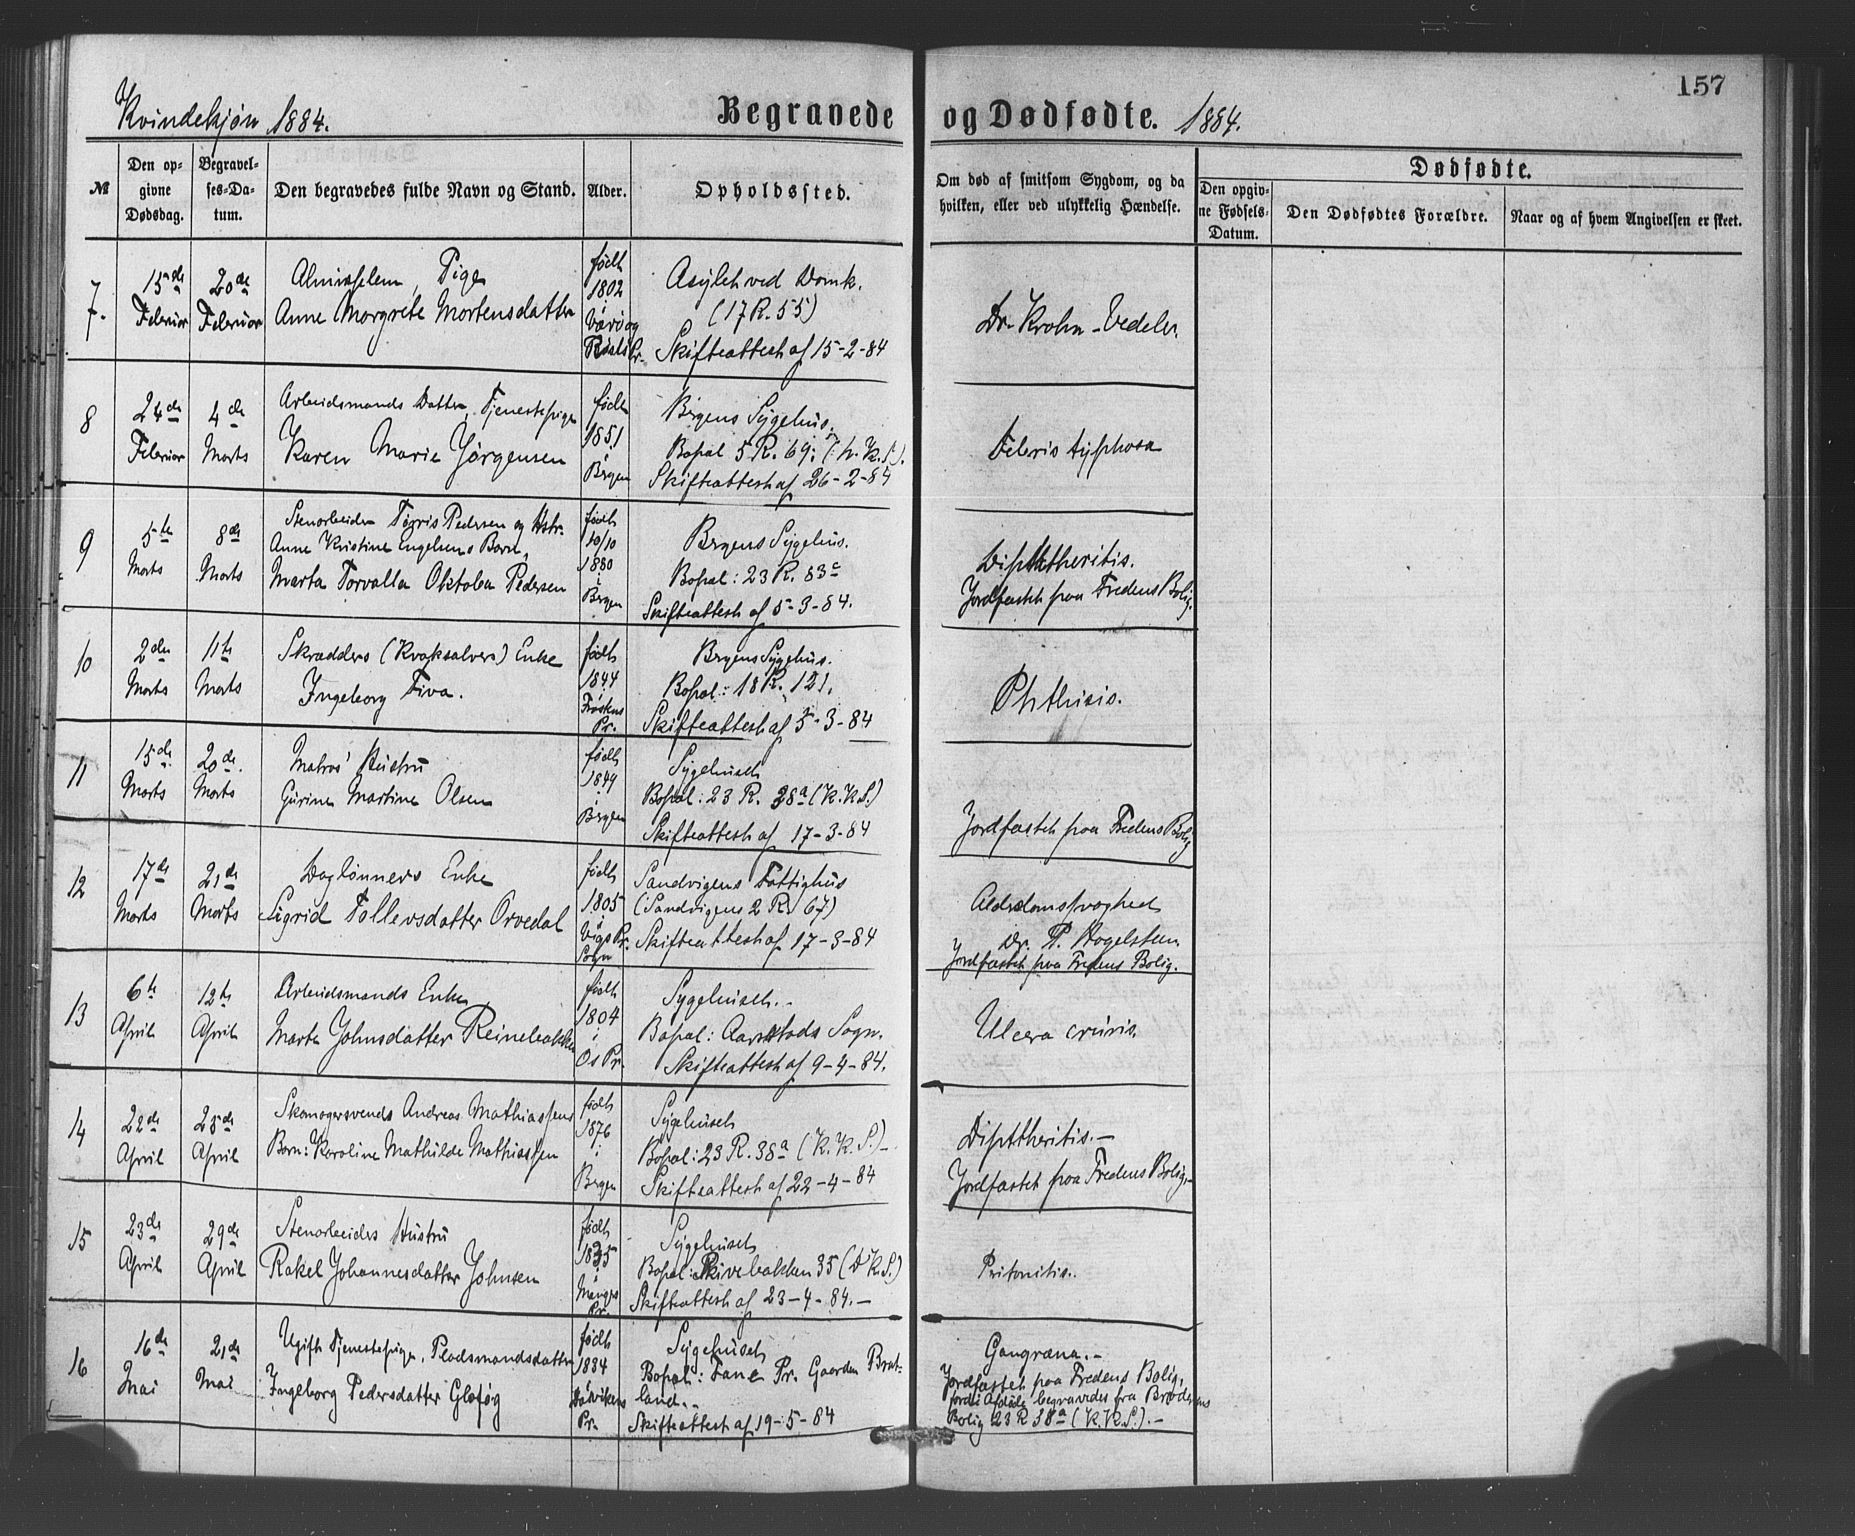 157
Kvindekjøn 1884.
Begravede og Dødfødte. 1884.
№
Den opgivne Dødsdag.
Begravelses-Datum.
Den begravedes fulde Navn og Stand.
Alder.
Opholdssted.
Om død af smitsom Sygdom, og da hvilken, eller ved ulykkelig Hændelse.
Dødfødte.
Den opgivne Fødsels-Datum.
Den Dødfødtes Forældre.
Naar og af hvem Angivelsen er skeet.
7.
15de Februar
20de Februar
Almisselem, Pige
Anne Margrete Mortensdatter
født 1802 i Værø og Røst Pr.
Asylet ved Domk.
(17 R. 55)
Skifteattest af 15-2-84
Dr. Krohn-Vedeler.
8
24de Februar
4de Marts
Arbeidsmands Datter, Tjenestepige
Karen Marie Jørgensen
født 1851 i Bergen
Bergens Sygehus.
Bopæl 5 R. 69; (N. K. S.).
Skifteattest af 26-2-84
Febris typhosa
9
5te Marts
8de Marts
Stenarbeider Tørris Pedersen og Hstr.
Anne Kristine Engelsens Barn,
Marta Torvalla Oktoba Pedersen
født 10/10 1880 i Bergen
Bergens Sygehus.
Bopæl: 23 R. 83c
Skifteattest af 5-3-84.
Diphtheritis.
Jordfæstet paa Fredens Bolig.
10
2den Marts
11te Marts
Skrædders (Kvaksalvers) Enke
Ingeborg Tiva.
født 1844 i Pr.
Bergens Sygehus.
Bopæl: 18 R. 121.
Skifteattest af 5-3-84
Phthisis.
11
15de Marts
20de Marts
Matros' Hustru
Gurine Martine Olsen
født 1849 i Bergen
Sygehuset
Bopæl: 23 R. 28a (K. K. S.)
Skifteattest af 17-3-84
Jordfæstet paa Fredens Bolig
12
17de Marts
21de Marts
Daglønners Enke
Sigrid Tollevsdatter Orvedal
født 1805 i Viks Pr. Sogn
Sandvigens Fattighus
(Sandvigens 2 R. 67)
Skifteattest af 17-3-84
Alderdomssvaghed
Dr. P. Hagelsteen
Jordfæstet paa Fredens Bolig.
13
6te April
12te April
Arbeidsmands Enke
Marta Johnsdatter Reinebakken
født 1804 i Os Pr.
Sygehuset.-
Bopæl: Aarstads Sogn.
Skifteattest af 9-4-84.
Ulcera cruris.
14
22de April
25de April
Skomagersvends Andreas Mathiassens
Barn: Karoline Mathilde Mathiassen
født 1876 i Bergen
Sygehuset
Bopæl: 23 R. 38a (K. K. S.)-
Skifteattest af 22-4-84
Diphtheritis.-
Jordfæstet paa Fredens Bolig.-
15
23de April
29de April
Stenarbeiders Hustru
Rakel Johannesdatter Johnsen
født 1835 i Mangers Pr.
Sygehuset
Bopæl: Skivebakken 35 (D. K. S.)
Skifteattest af 23-4-84.-
Pritonitis.
16
16de Mai
21de Mai
Ugift Tjenestepige, Pladsmandsdatter
Ingeborg Pedersdatter
født 1834 Pr.
Sygehuset
Bopæl: Fane Pr. Gaarden Brat-
land.-
Skifteattest af 19-5-84
Gangræna.-
Jordfæstet paa Fredens Bolig,
begravedes fra Broderens
Bolig 23 R 38a (K. K. S.).-